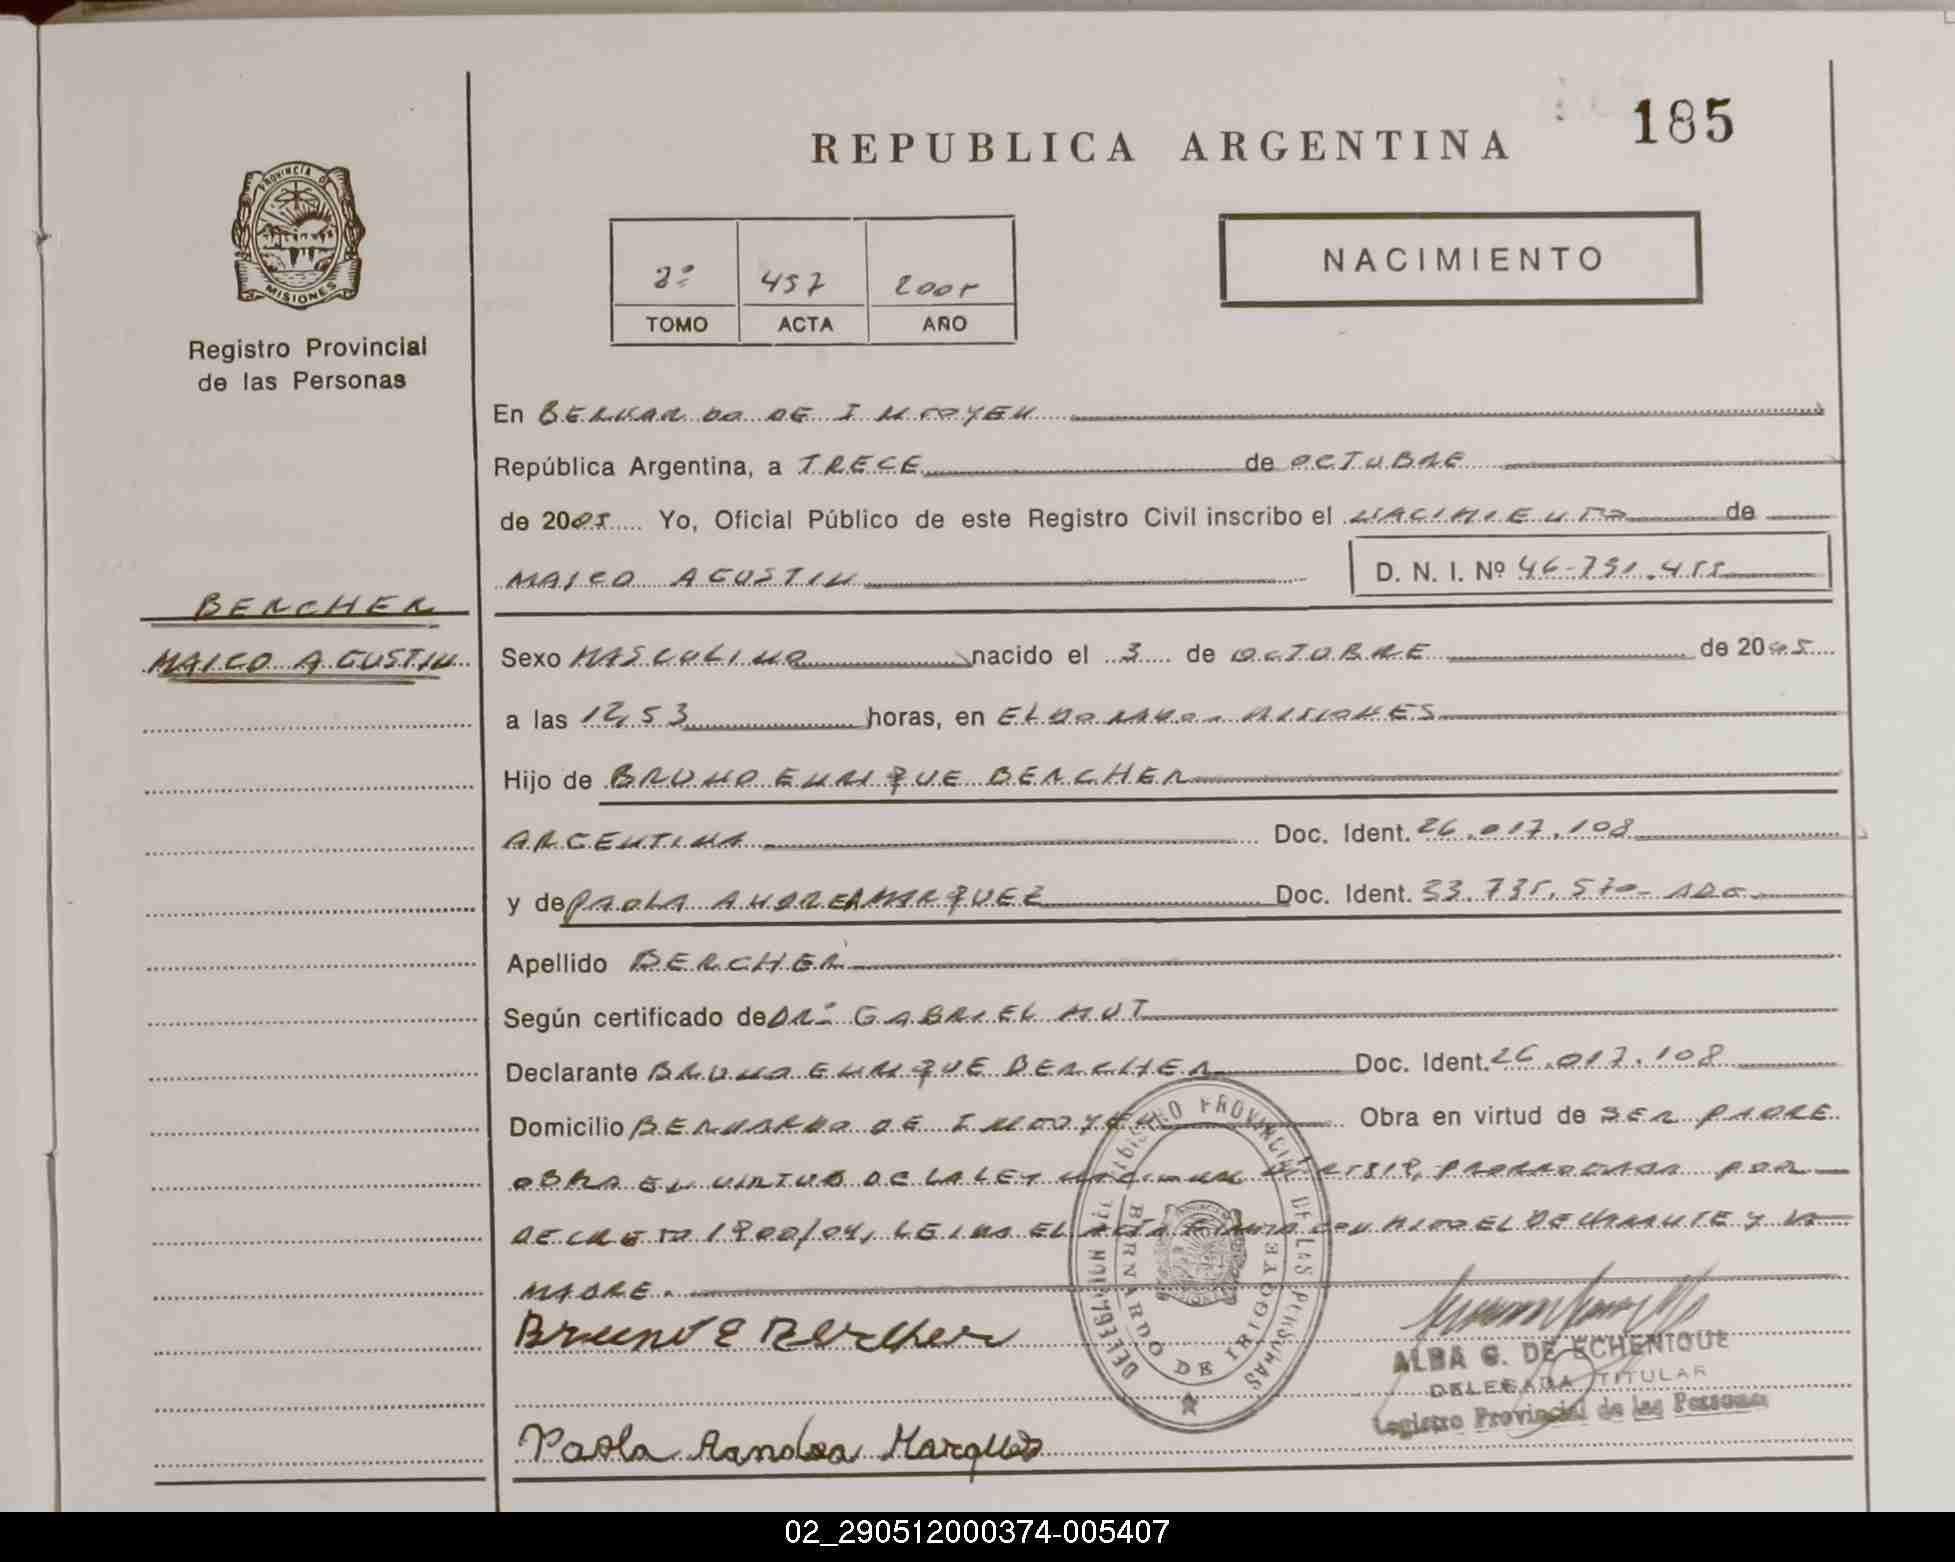 185
REPUBLICA ARGENTINA
PROVINCIA DE
MISIONES
Registro Provincial
de las Personas
NACIMIENTO
2º 457 2005
TOMO ACTA AÑO
En BERNARDO DE IRIGOYEN
República Argentina, a TRECE de OCTUBRE
de 2005 Yo, Oficial Público de este Registro Civil inscribo el NACIMIENTO de
MAICO AGUSTIN D. N. I. Nº 46-791.455
BERCHER
MAICO AGUSTIN
Sexo MASCULINO nacido el 3 de OCTUBRE de 2005
a las 12,53 horas, en ELDORADO - MISIONES
Hijo de BRUNO ENRIQUE BERCHER
ARGENTINA Doc. Ident. 26.017.108
y de PAOLA ANDREA MARQUEZ Doc. Ident. 33.735.570- ARG.
Apellido BERCHER
Según certificado de DR. GABRIEL MUT
Declarante BRUNO ENRIQUE BERCHER Doc. Ident. 26.017.108
Domicilio BERNARDO DE IRIGOYEN Obra en virtud de SER PADRE
OBRA EN VIRTUD DE LA LEY NACIONAL PRORROGADA POR
DECRETO 1900/04, LEIDA EL ACTA FIRMAN CONMIGO EL DECLARANTE Y LA
MADRE.
Bruno E Bercher
Paola Aandrea Marquez
DELEGACION REGISTRO PROVINCIAL DE LAS PERSONAS
BERNARDO DE IRIGOYEN
ALBA G. DE ECHENIQUE
DELEGADA TITULAR
Registro Provincial de las Personas
02_290512000374-005407